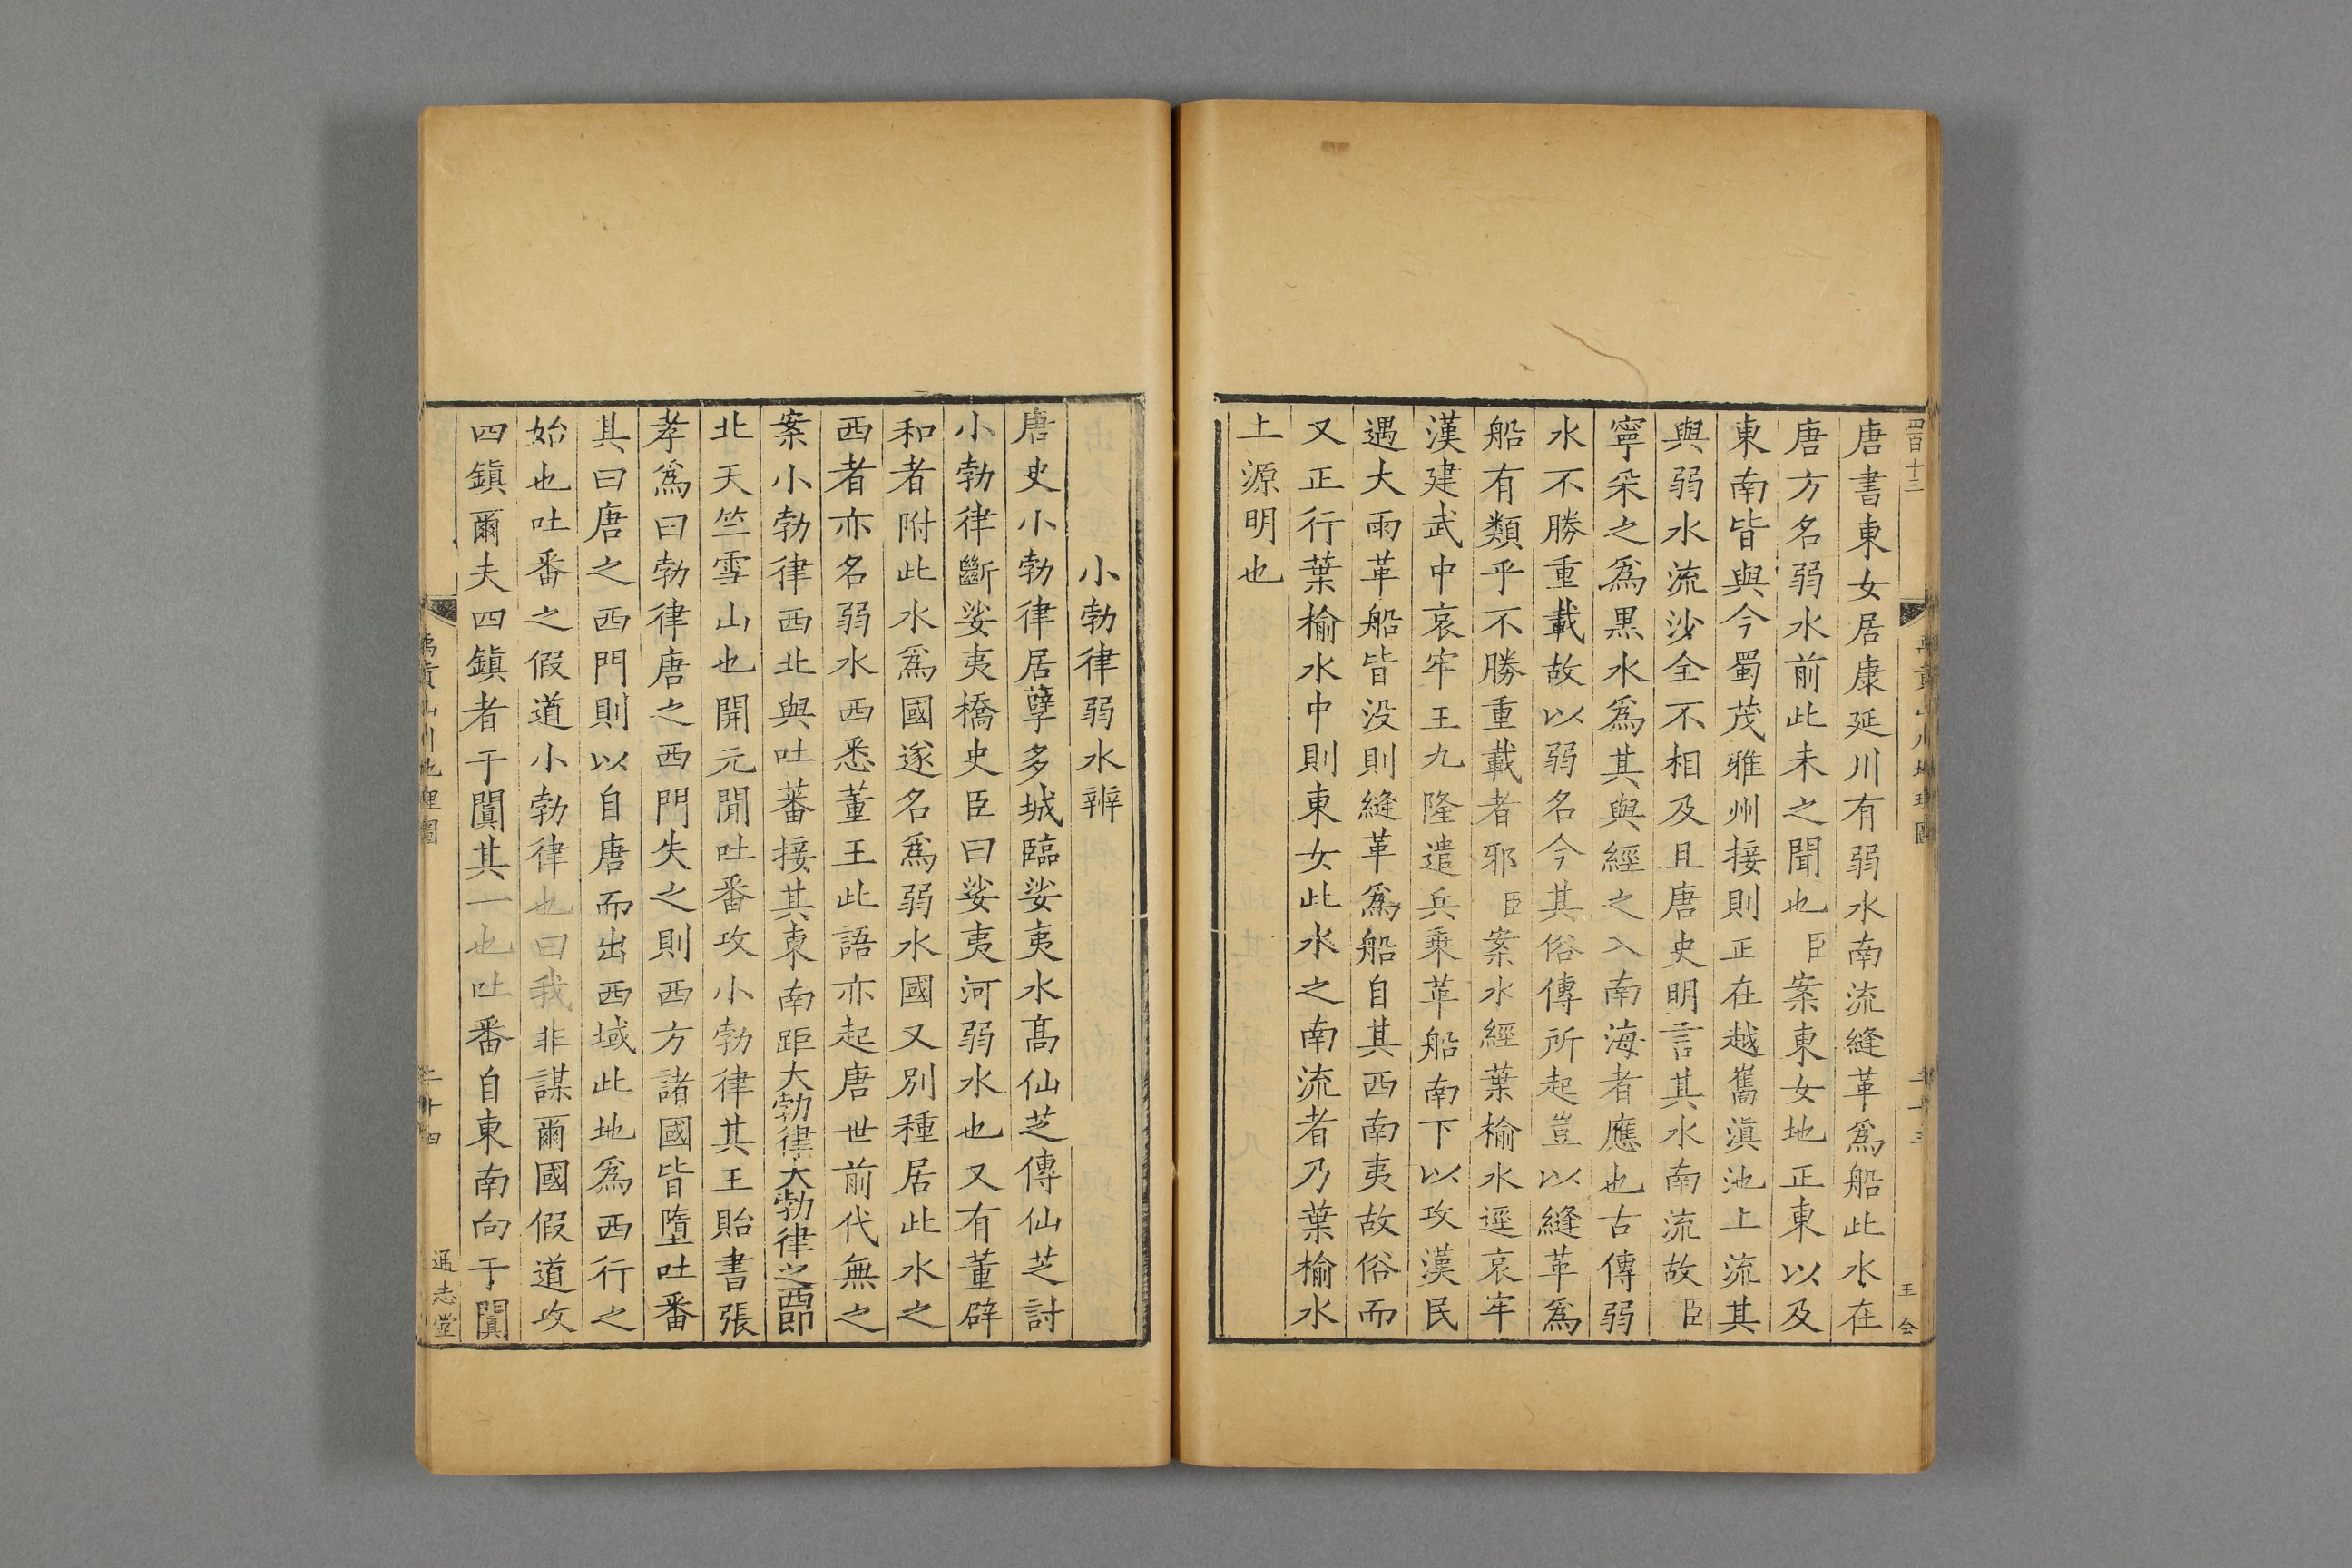 四百十三
王 公
唐書東女居康延川有弱水南流縫革爲船此水在
唐方名弱水前此未之聞也臣案東女地正東以及
東南皆與今蜀茂雅州接則正在越嶲滇池上流其
與弱水流沙全不相及且唐史明言其水南流故臣
寧采之爲黑水爲其與經之入南海者應也古傳弱
水不勝重載故以弱名今其俗傳所起豈以縫革爲
船有類乎不勝重載者耶臣案水經葉榆水逕哀牢
漢建武中哀牢王九隆遣兵乗革船南下以攻漢民
遇大雨革船皆没則縫革爲船自其西南夷故俗而
又正行葉榆水中則東女此水之南流者乃葉榆水
上源明也
小勃律弱水辨
唐史小勃律居孽多城臨娑夷水髙仙芝傳仙芝討
小勃律斷娑夷橋史臣曰娑夷河弱水也又有董辟
和者附此水爲國遂名爲弱水國又別種居此水之
西者亦名弱水西悉董王此語亦起唐世前代無之
案小勃律西北與吐蕃接其東南距大勃律大勃律之西即
北天竺雪山也開元閒吐番攻小勃律其王貽書張
孝嵩曰勃律唐之西門失之則西方諸國皆墮吐番
其曰唐之西門則以自唐而出西域此地爲西行之
始也吐番之假道小勃律也曰我非謀爾國假道攻
四鎮爾夫四鎮者于闐其一也吐番自東南向于闐
禹貢山川地理圖
二十四
通志堂